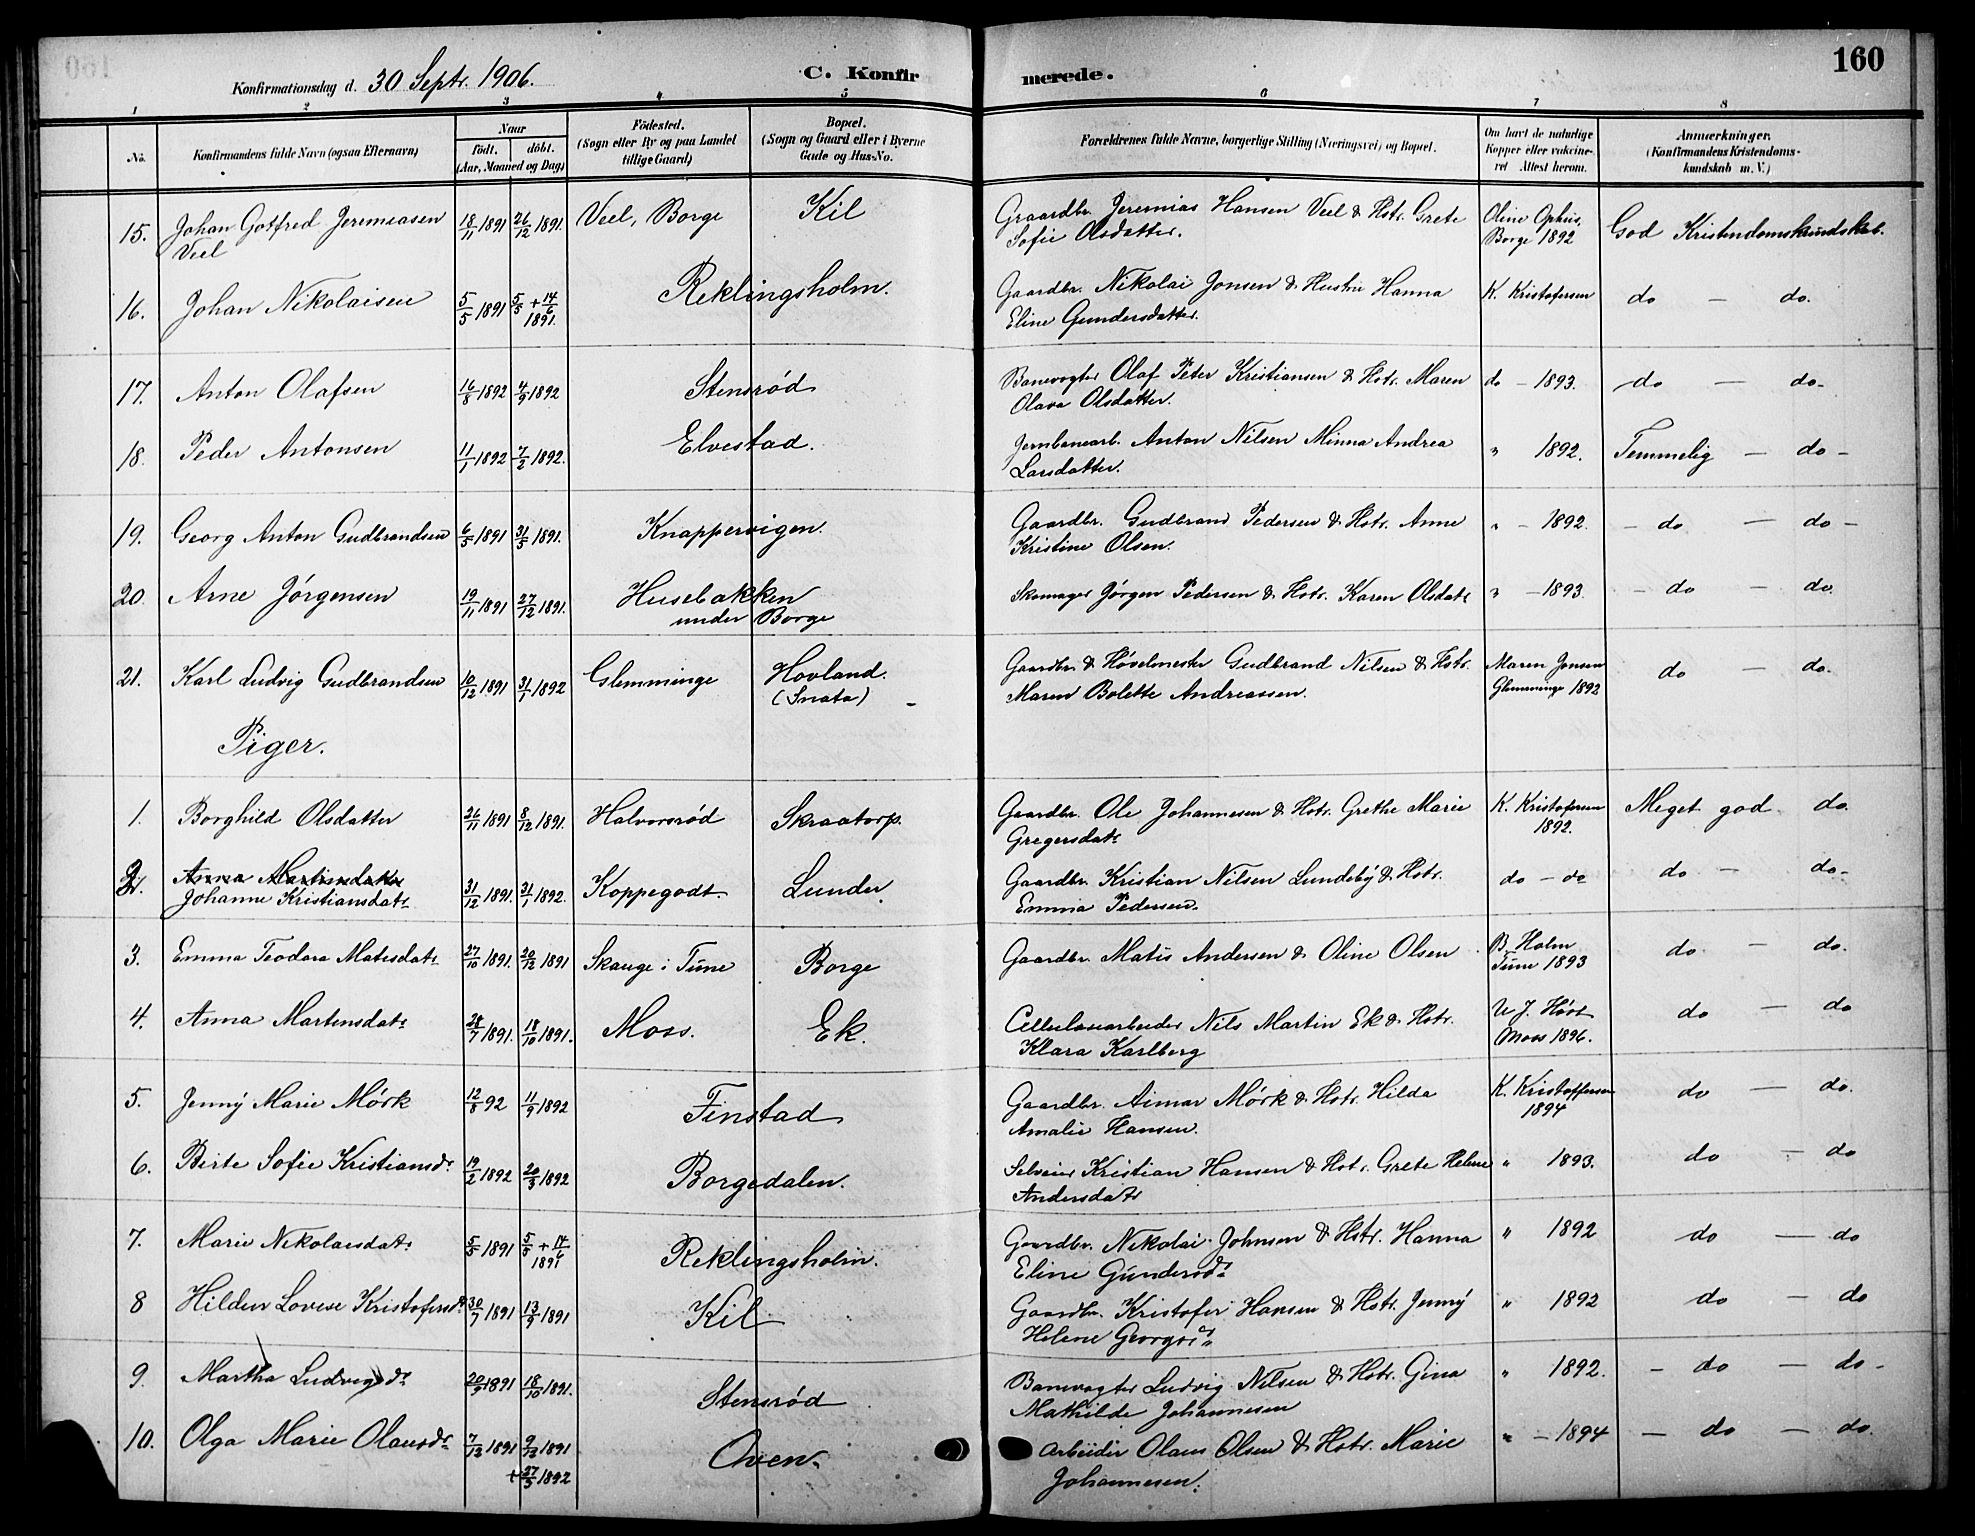 160
Konfirmationsdag d. 30 Septr. 1906.
C. Konfirmerede.
1 2 3 4 5 6 7 8
No.
Konfirmandens fulde Navn (ogsaa Efternavn)
Naar
født. døbt.
(Aar, Maaned og Dag)
Fødested.
(Sogn eller By og paa Landet
tillige Gaard)
Bopæl.
(Sogn og Gaard eller i Byerne
Gade og Hus-No.
Forældrenes fulde Navne, borgerlige Stilling (Næringsvei) og Bopæl.
Om havt de naturlige
Kopper eller vakcine-
ret Attest herom.
Anmærkninger.
(Konfirmandens Kristendoms-
kundskab m. V.)
15. Johan Gotfred Jeremiasen 18/11 1891 26/12 1891. Veel, Borge Kil Graardbr. Jeremias Hansen Veel & Hstr. Grete Oline Ophus, God Kristendomskundskab.
Veel Sofie Olsdatter. Borge 1892
16. Johan Nikolaisen 5/5 1891 5/5 + 14/6 1891. Reklingsholm. Gaardbr. Nikolai Jonsen & Hustru Hanna K. Kristofersen do — do.
Eline Gundersdatter.
17. Anton Olafsen 16/8 1892 4/9 1892 Stensrød Banevogter Olaf Peter Kristiansen & Hstr. Maren do — 1893. do — do-
Olava Olsdatter.
18. Peder Antonsen 11/1 1892 7/2 1892. Elvestad. Jernbanearb. Anton Nilsen Minna Andrea " 1892. Temmelig — do —
Larsdatter.
19. Georg Anton Gudbrandsen 6/5 1891 31/5 1891. Knappervigen. Gaardbr. Gudbrand Pedersen & Hstr. Anne " — 1892. — do — do —
Kristine Olsen.
20. Arne Jørgensen 19/11 1891 27/12 1891. Husebakken Skomager Jørgen Pedersen & Hstr. Karen Olsdatr " — 1893. — do — do.
under Borge
21. Karl Ludvig Gudbrandsen 10/12 1891 31/1 1892 Glemminge Hovland. Gaardbr. & Høvelmester Gudbrand Nilsen & Hstr. Maren Jensen do — do.
(Snata) Maren Bolette Andreassen. Glemminge 1892
Piger.
1. Borghild Olsdatter 26/11 1891 8/12 1891. Halvorsrød Skraatorp. Gaardbr. Ole Johannesen & Hstr. Grethe Marie K. Kristofersen Meget god do.
Gregersdatr 1892.
2. Anna Martinsdatter
Johanne Kristiansdatr 31/12 1891. 31/1 1892. Koppegodt. Lunder. Gaardbr. Kristian Nilsen Lundeby & Hstr. do — do do — do-
Emma Pedersen.
3. Emma Teodora Matisdatr 27/10 1891. 20/12 1891 Skauge i Tune Borge Gaardbr. Matis Andersen & Oline Olsen B. Holm do — do.
Tune 1893
4. Anna Martensdatr 28/7 1891. 18/10 1891. Moss. Ek. Cellulosearbeider Nils Martin Ek & Hstr. do — do
Klara Karlberg Moss 1896.
5. Jenny Marie Mørk 12/8 92 11/9 1892 Finstad Gaardbr. Aimar Mørk & Hstr. Hilda K. Kristoffersen do — do.
Amalie Hansen. 1894
6. Birte Sofie Kristiansdr 19/2 1892 20/3 1892 Borgedalen. Selveier Kristian Hansen & Hstr. Grete Helene " 1893. do — do
Andersdatr
7. Marie Nikolaisdatr 5/5 1891 5/5 + 14/6 1891 Reklingsholm. Gaardbr. Nikolai Johnsen & Hstr. Hanna " 1892 do — do
Eline Gundersdr
8 Hildur Lovise Kristofersdr 30/7 1891 13/9 1891 Kil Gaardbr. Kristofer Hansen & Hstr. Jenny " 1892 do — do
Helene Georgsdr
9. Martha Ludvigsdr 20/9 1891 18/10 1891. Stensrød Banevogter Ludvig Nilsen & Hstr. Gina " 1892. — do — do-
Mathilde Johannesen
10. Olga Marie Olausdr 7/12 1891 9/12 1891 Oven. Arbeider Olaus Olsen & Hstr. Marie " — 1894 — do — do.
+ 27/3 1892 Johannesen.